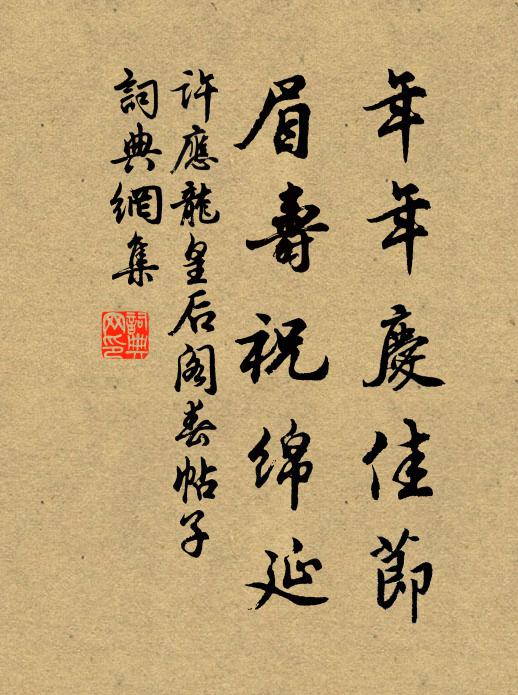 年年慶佳節
眉壽祝綿延
許應龍皇后阁春帖子
詞典網集
詞典網印